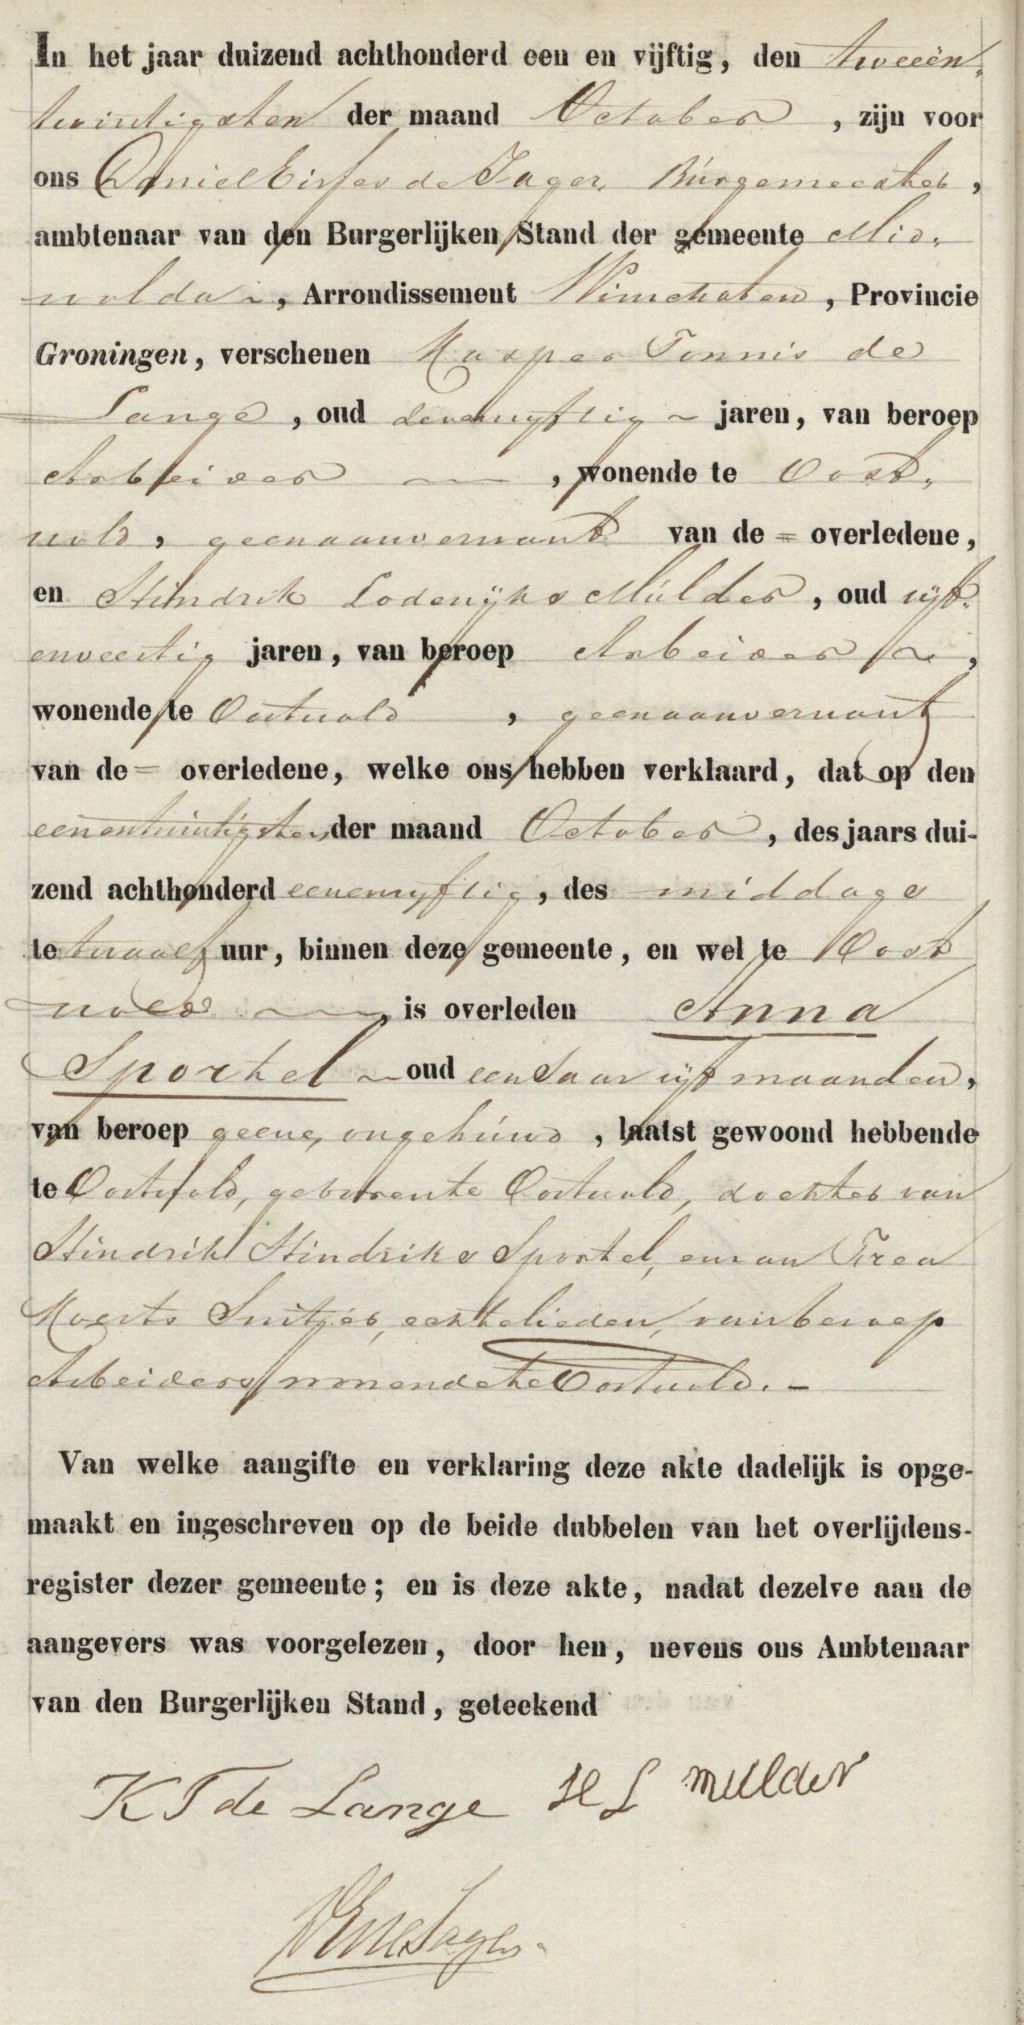 In het jaar duizend achthonderd een en vijftig, den tweeën-
twintigsten der maand October, zijn voor
ons Daniel de Jager, Burgemeester,
ambtenaar van den Burgerlijken Stand der gemeente Mid-
wolda, Arrondissement Winschoten, Provincie
Groningen, verschenen Kasper Tonnis de
Lange, oud jaren, van beroep
Arbeider, wonende te Oost-
wold, geenaanverwant van de = overledene,
en Hindrik Lodewijks Mulder, oud vijf-
enveertig jaren, van beroep Arbeider,
wonende te Oostwold, geenaanverwant
van de = overledene, welke ons hebben verklaard, dat op den
eenentwintigsten der maand October, des jaars dui-
zend achthonderd eenenvyftig, des middags
te twaalf uur, binnen deze gemeente, en wel te Oost
wold is overleden Anna
Sportel oud een Jaar vijf maanden,
van beroep geene, ongehuwd, laatst gewoond hebbende
te Oostwold, geboren te Oostwold, dochter van
Hindrik Hindriks Sportel, en van Trea
Koerts Suitjer, echtelieden, van beroep
Arbeiders, wonende te Oostwold.-
Van welke aangifte en verklaring deze akte dadelijk is opge-
maakt en ingeschreven op de beide dubbelen van het overlijdens-
register dezer gemeente; en is deze akte, nadat dezelve aan de
aangevers was voorgelezen, door hen, nevens ons Ambtenaar
van den Burgerlijken Stand, geteekend
K T de Lange H L mulder
DE de Jager